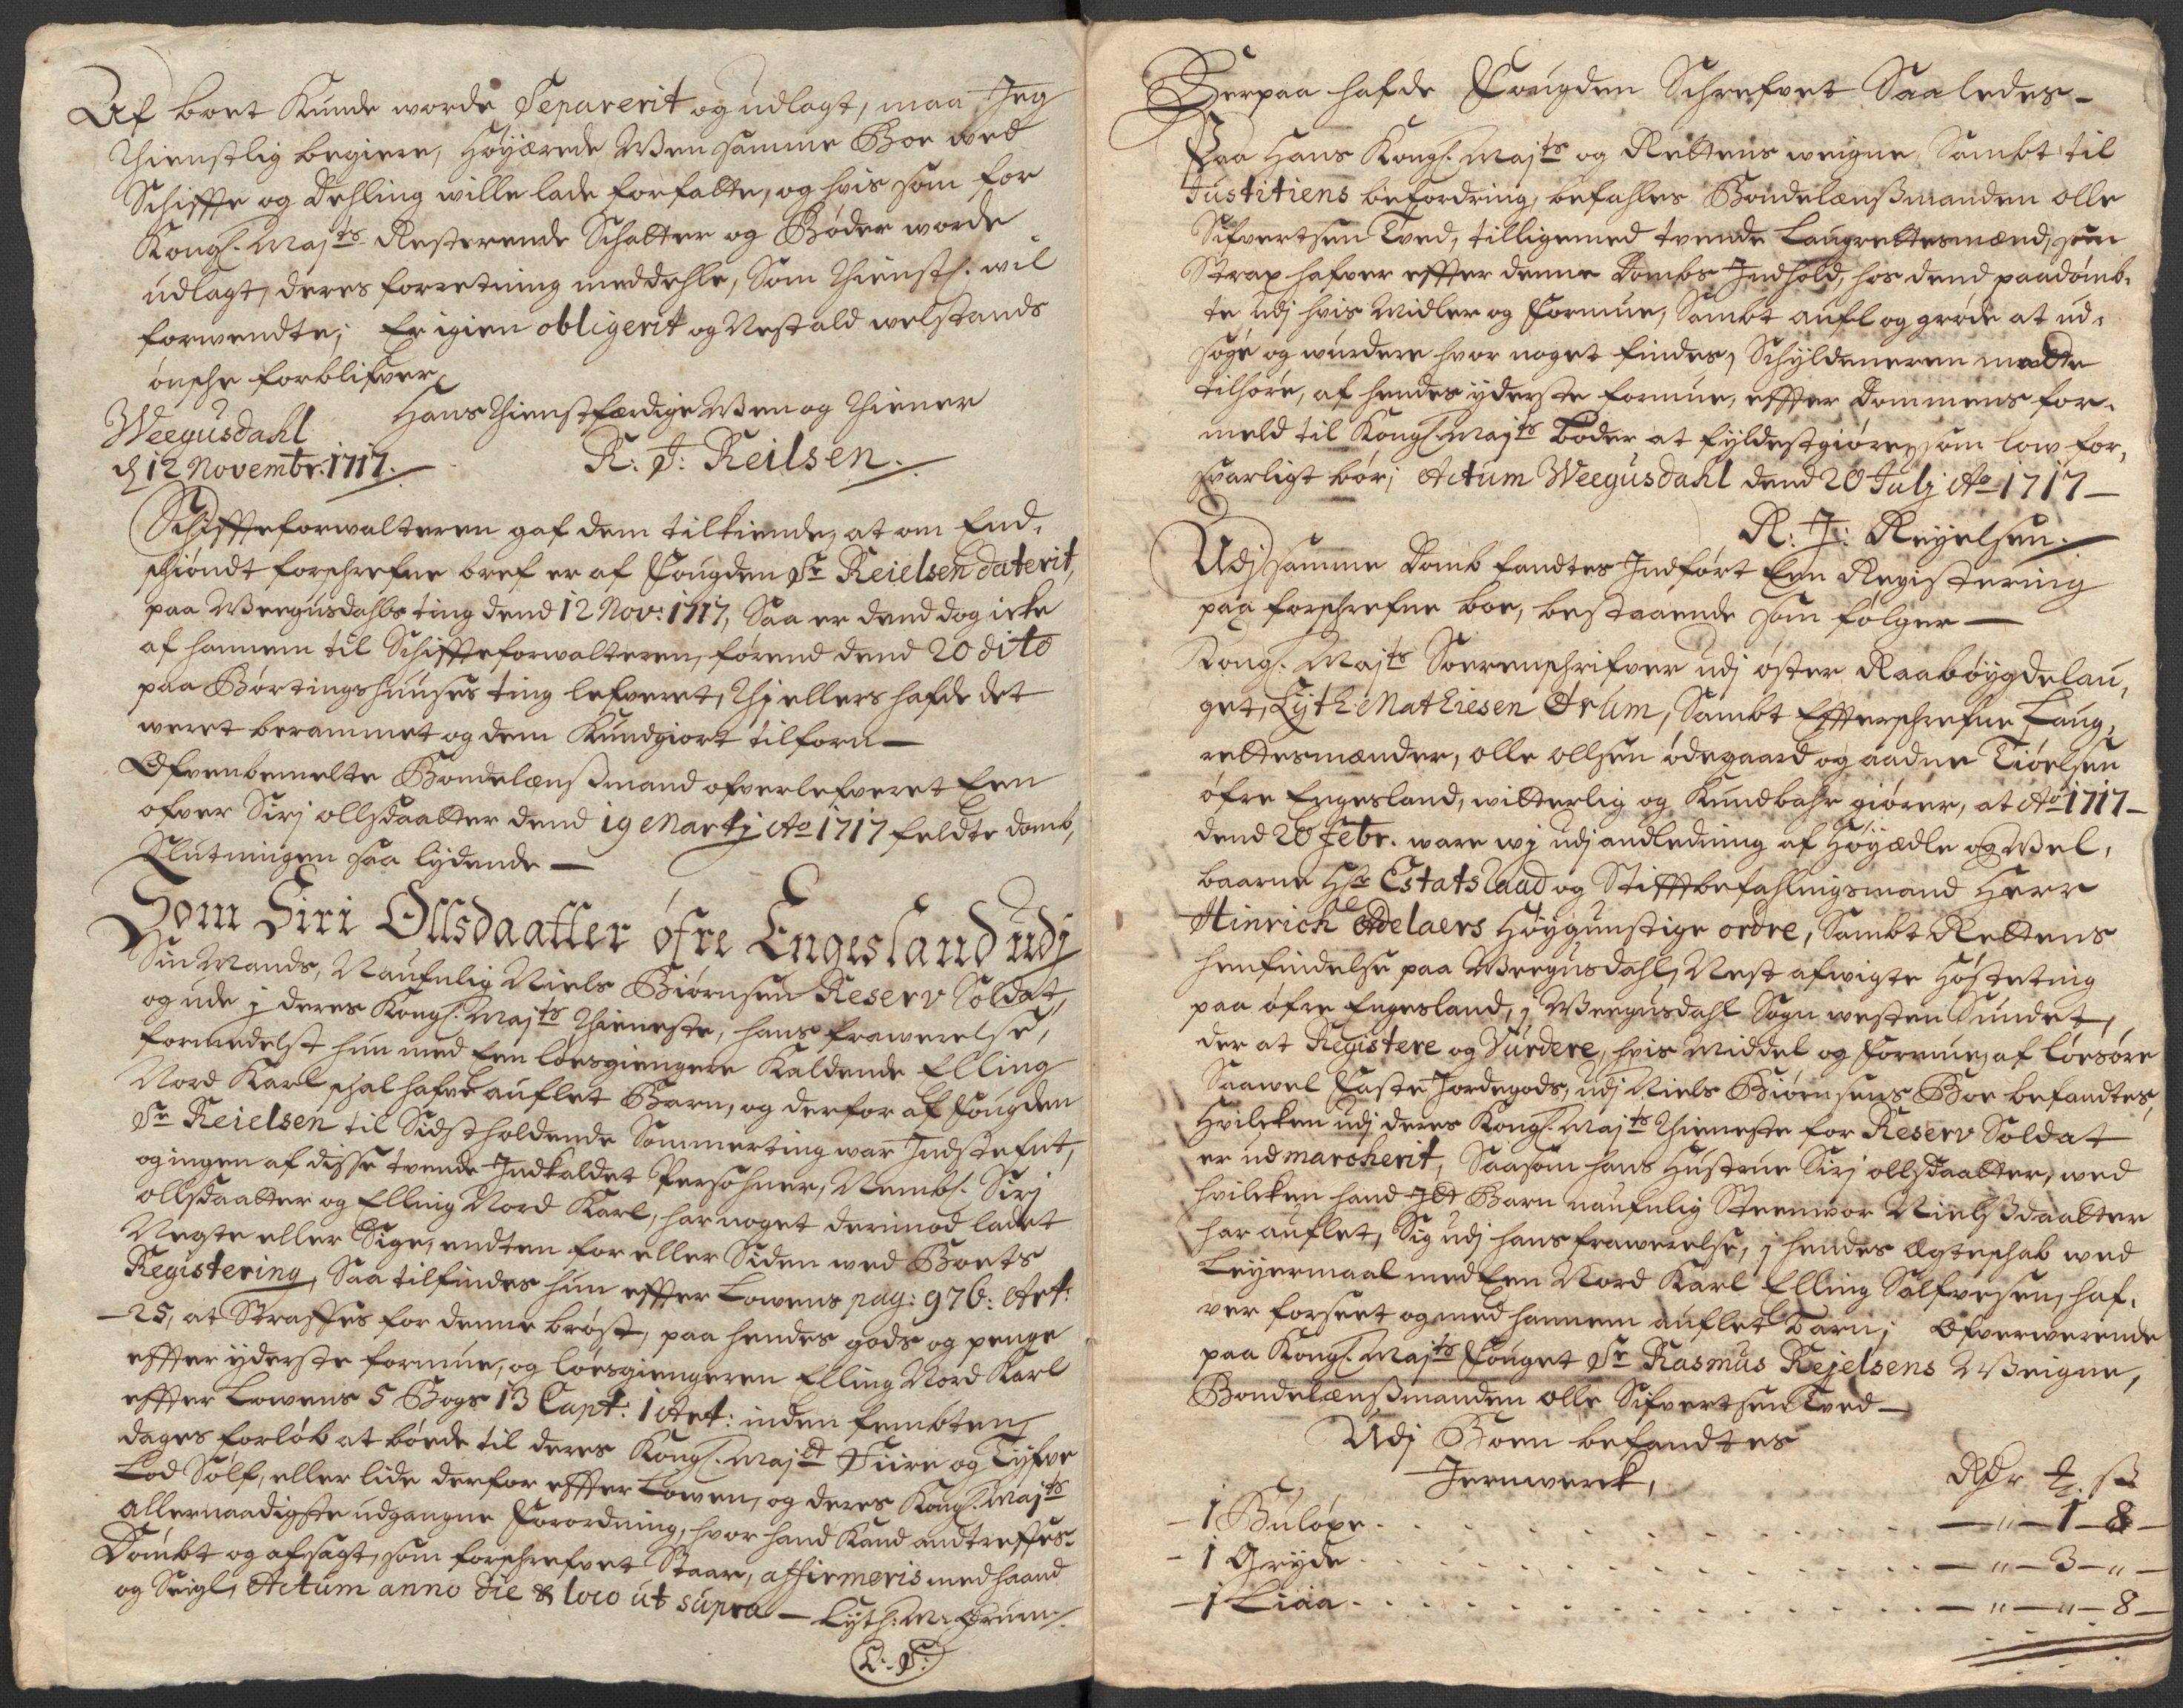 Af boet Kunde worde Separerit og udlagt, maa Jeg
thienstlig begiere, Høyærede Wen samme Boe wed
Schiffte og dehling wille lade forfatte, og hvis som for
Kongl. Majts Resterende Schatter og Bøder worde
udlagt, deres forretning meddehle, Som thienstl. wil
forwendte; Er igien obligerit og Nest ald welstands
ønsche forblifver
Weegusdahl Hans thienstfærdige Wen og thiener
d 12 Novembr. 1717. R: J: Reilsen.
Schiffteforwalteren gaf dem tilkiende, at om End,
schiøndt forschrefne bref er af Fougden Sr Reielsen daterit,
paa Weegusdahls ting dend 12 Nov: 1717, Saa er dend dog icke
af hannem til Schiffteforwalteren, førend dend 20 dito
paa Børtingshuuses ting lefveret, thj ellers hafde det
weret berammet og dem Kundgiort tilforn—
Ofvenbemelte Bondelænßmand ofverlefveret Een
ofver Sirj ollsdaatter dend 19 Martj Ao 1717 feldte domb,
Slutningen saa lydende—
Som Siri Ollsdaatter øfre Engesland udj
Sin Mands, Naufnlig Niels Biørnsen Reserv Soldat,
og ude j deres Kongl. Majts thieneste, hans frawerelse,
formedelst hun med Een løesgiengere Kaldende Elling
Nord Karl schal hafve auflet Barn, og derfor af Fougden
Sr Reielsen til Sidstholdende Sommerting war Indstefnt,
og ingen af disse tvende Indkaldet Persohner, Nembl. Sirj
ollsdaatter og Elling Nord Karl, har noget derimod ladet
Negte eller Sige, endten for eller Siden wed Boets
Registering, Saa tilfindes hun effter Lowens pag: 976: Art:
—25, at Straffes for denne brøst, paa hendes gods og penge
effter yderste formue, og løesgiengeren Elling Nord Karl
effter Lowens 5 Bogs 13 Capt: 1 Art: inden fembten
dages forløb at bøede til deres Kongl. Majtt Fiire og Tyfve
Lod Sølf, eller lide derfor effter Lowen, og deres Kongl. Majts
allernaadigste udgangne Forordning, hvor hand Kand andtreffes.
Dømbt og afsagt, som forschrefvet Staar, affirmeris med haand
og Seigl, Actum anno die & loco ut supra— Lyth: M: Ørum
L: S:
Derpaa hafde Fougden Schrefvet Saaledes—
Paa Hans Kongl. Majts og Rettens weigne Sambt til
Justitiens befordring, befahles Bondelænßmanden olle
Sifvertsen Tved, tilligemed tvende Laugrettesmænd, som
Strax hafver effter denne Dombs Indhold, hos dend paadømb,
te udj hvis Midler og Formue, Sambt aufl og grøde at ud,
søge og wurdere hvor noget findes, Schyldeneren motte
tilhøre, af hendes yderste formue, effter Dommens for,
meld til Kongl. Majts bøder at fyldestgiøre, som low for,
svarligt bør; Actum Weegusdahl dend 20 Julj Ao 1717—
R: J: Reyelsen.
Udj samme Domb fandtes Indført Een Registering
paa forschrefne boe, bestaaende som følger—
Kongl. Majts Soerenschrifver udj øster Raabøygdelau,
get, Lyth Mathiesen Ørum, Sambt Effterschrefne Laug,
rettesmænder, olle ollsen ødegaard og aadne Tiøelsen
øfre Engesland, witterlig og Kundbahr giører, at Ao 1717—
dend 20 Febr. ware wj udj andledning af Høyædle og Wel,
baarne Hr Estatsraad og Stifftbefahlingsmand Herr
Hinrich Adelaers Høygunstige ordre, Sambt Rettens
henfindelse paa Weegusdahl, Nest afwigte Høsteting
paa øfre Engesland, j Weegusdahl Sogn westen Sundet,
der at Registere og Vurdere, hvis Middel og Formue, af løesøre
Saawel Faste Jordegods, udj Niels Biørnsens Boe befandtes,
Hvilcken udj deres Kongl. Majts thieneste for Reserv Soldat
er udmarcherit, Saasom hans Hustrue Sirj ollsdaatter, wed
hvilcken hand Itt Barn naufnlig Steenwor Nielsdaatter
har auflet, Sig udj hans frawerelse, j hendes Egteschab wed
Leyermaal med Een Nord Karl Elling Solfvesen, haf,
ver forseet og med hannem auflet Barn; Ofverwerende
paa Kongl. Majts Fouget Sr Rasmus Rejelsens Weigne,
Bondelænßmanden olle Sifvertsen Tved—
Udj Boen befandtes
Jernwerck, Rdr ß
—1 Buløxe — „ — 1 — 8 —
—1 Gryde — „ — 3 — „ —
—1 Liaa — „ — „ — 8 —